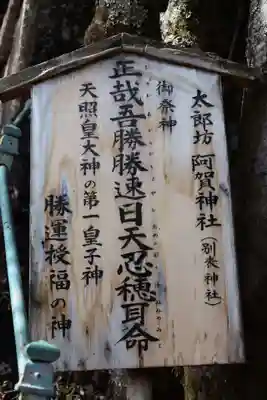 太郎坊 阿賀神社（別表神社）
御祭神
正哉吾勝勝速日天忍穂耳命
天照皇大神の第一皇子神
勝運授福の神